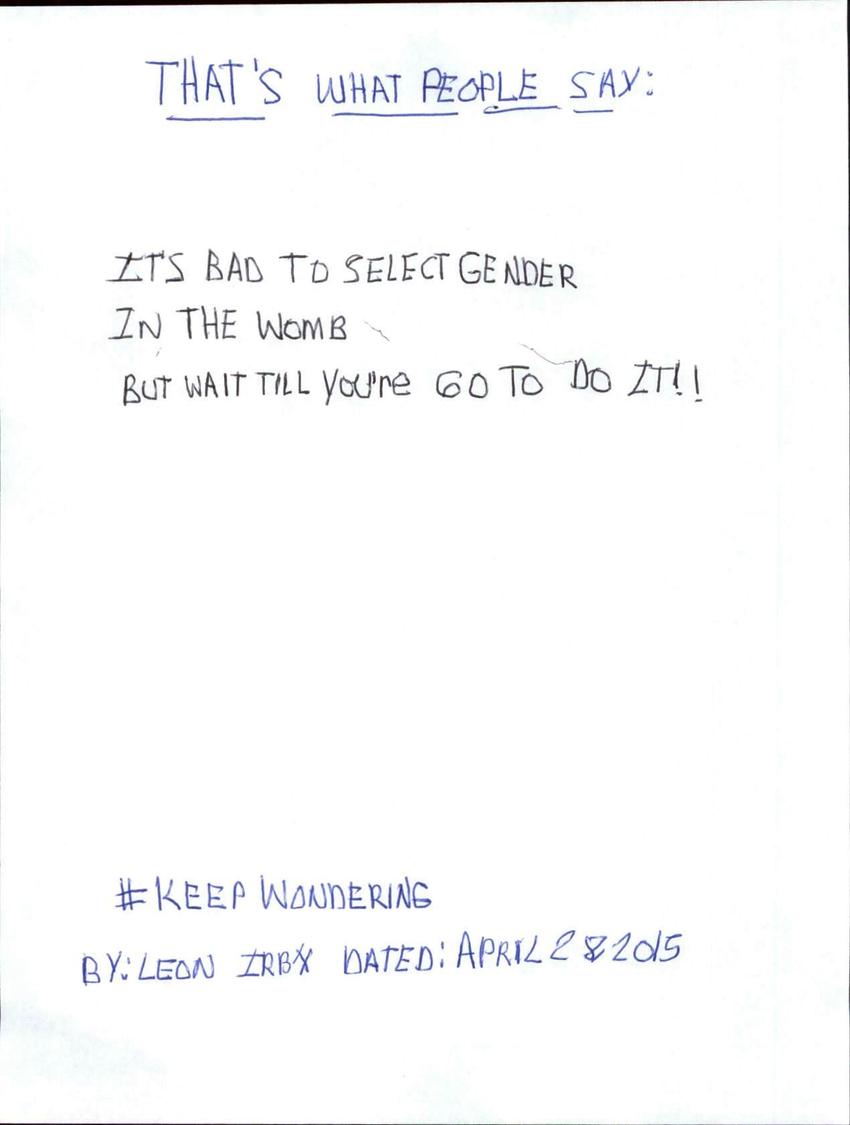 THAT'S WHAT PEOPLE SAY:
IT'S BAD TO SELECT GENDER
IN THE WOMB
BUT WAIT TILL YOU'Re GO TO DO IT!!
#KEEP WONDERING
BY: LEON IRBY DATED: APRIL 28 2015